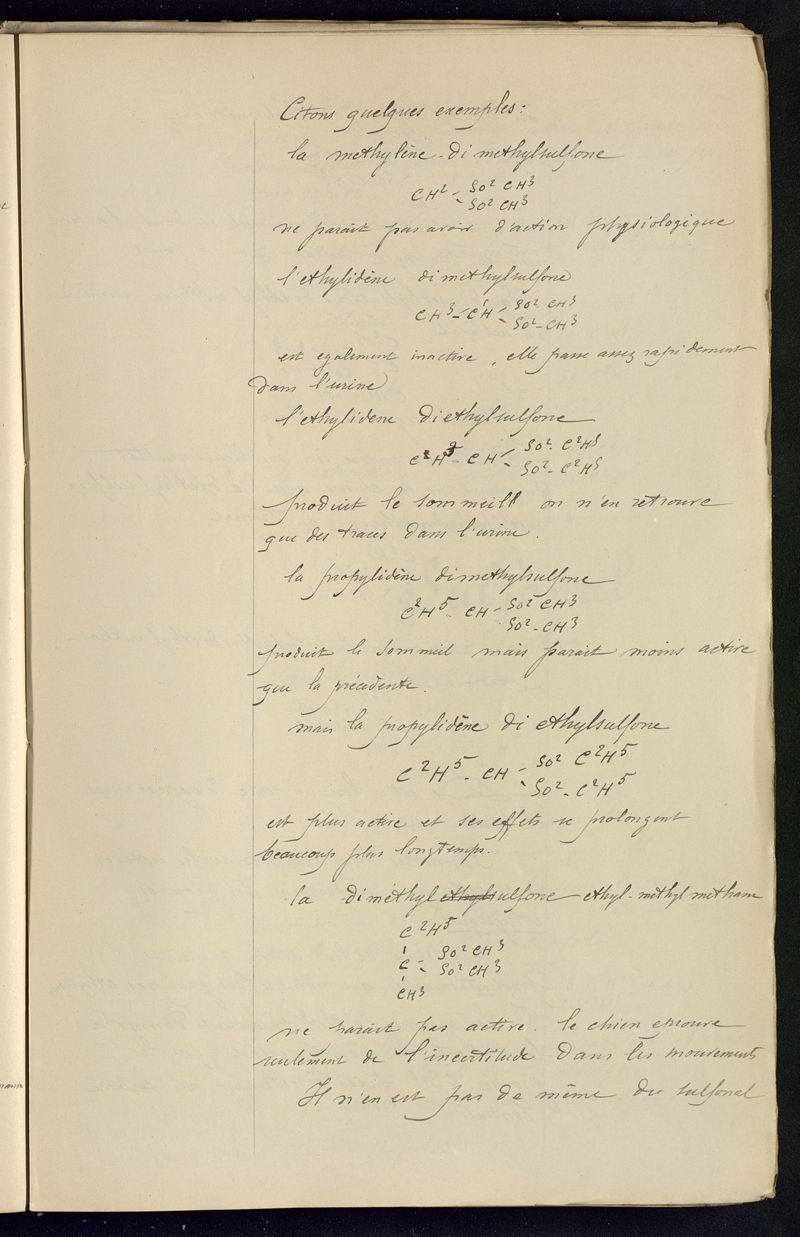 Citons quelques exemples:
la methylène-dimethylsulfone
CH² - SO² CH³
SO² CH³
ne parait pas avoir d'action physiologique
l'ethylidène dimethylsulfone
CH³ - CH - SO² CH³
SO² - CH³
est egalement inactive, elle passe assez rapidement
dans l'urine
l'ethylidene Diethylsulfone
C²H³ - CH - SO² - C²H⁵
SO² - C²H⁵
produit le sommeil on n'en retrouve
que des traces dans l'urine.
la propylidène dimethylsulfone
C²H⁵ - CH - SO² CH³
SO² - CH³
produit le sommeil mais parait moins active
que la précedente.
mais la propylidène di ethylsulfone
C²H⁵ - CH - SO² C²H⁵
SO² - C²H⁵
est plus active et ses effets se prolongent
beaucoup plus longtemps.
la dimethyl ethylsulfone ethyl-methyl methane
C²H⁵
C - SO² CH³
SO² CH³
CH³
ne parait pas active. le chien eprouve
seulement de l'incertitude dans les mouvements
Il n'en est pas de même du sulfonal